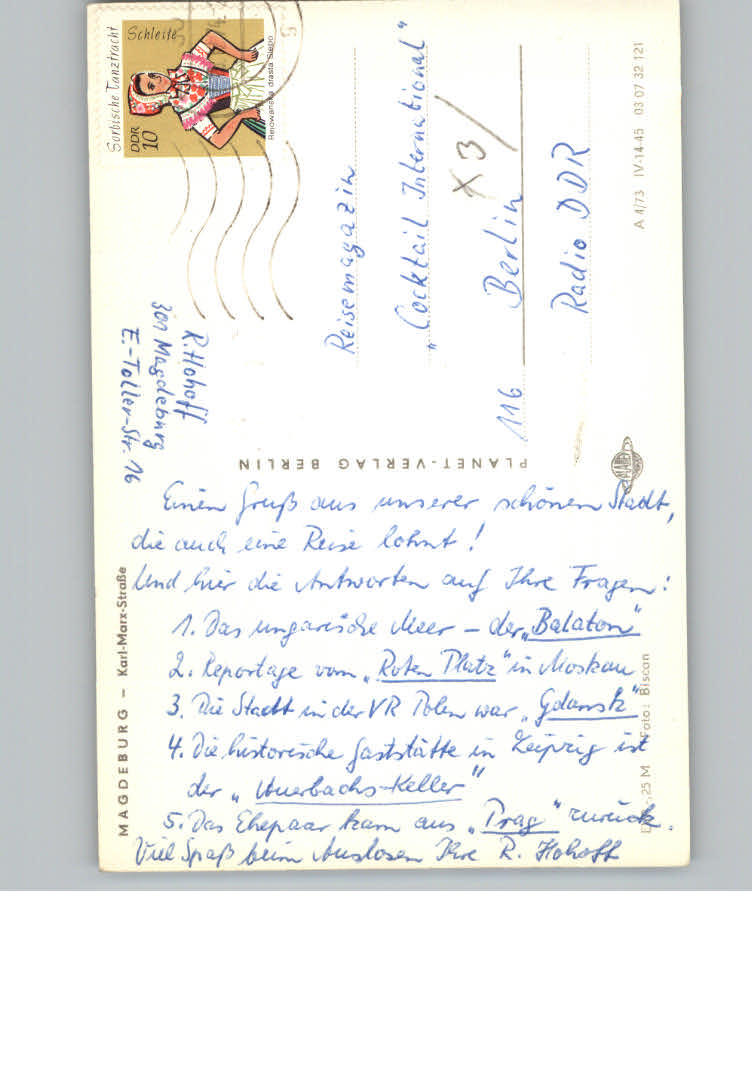 Sorbische Tanztracht
Schleife
DDR
10
Rejowanska drasta Slepo
R. Hohoff
301 Magdeburg
E.-Toller-Str. 16
Reisemagazin
"Cocktail International"
X3/
116 Berlin
Radio DDR
A 4/73 IV-14-45 03 07 32 121
PLANET-VERLAG BERLIN
PLANET
MAGDEBURG – Karl-Marx-Straße
Einen Gruß aus unserer schönen Stadt,
die auch eine Reise lohnt!
Und hier die Antworten auf Ihre Fragen:
1. Das ungarische Meer – der „Balaton"
2. Reportage vom „Roten Platz" in Moskau
3. Die Stadt in der VR Polen war „Gdansk"
4. Die historische Gaststätte in Leipzig ist
der „Auerbachs-Keller"
5. Das Ehepaar kam aus „Prag" zurück.
Viel Spaß beim Auslosen Ihre R. Hohoff
,25 M Foto: Biscan